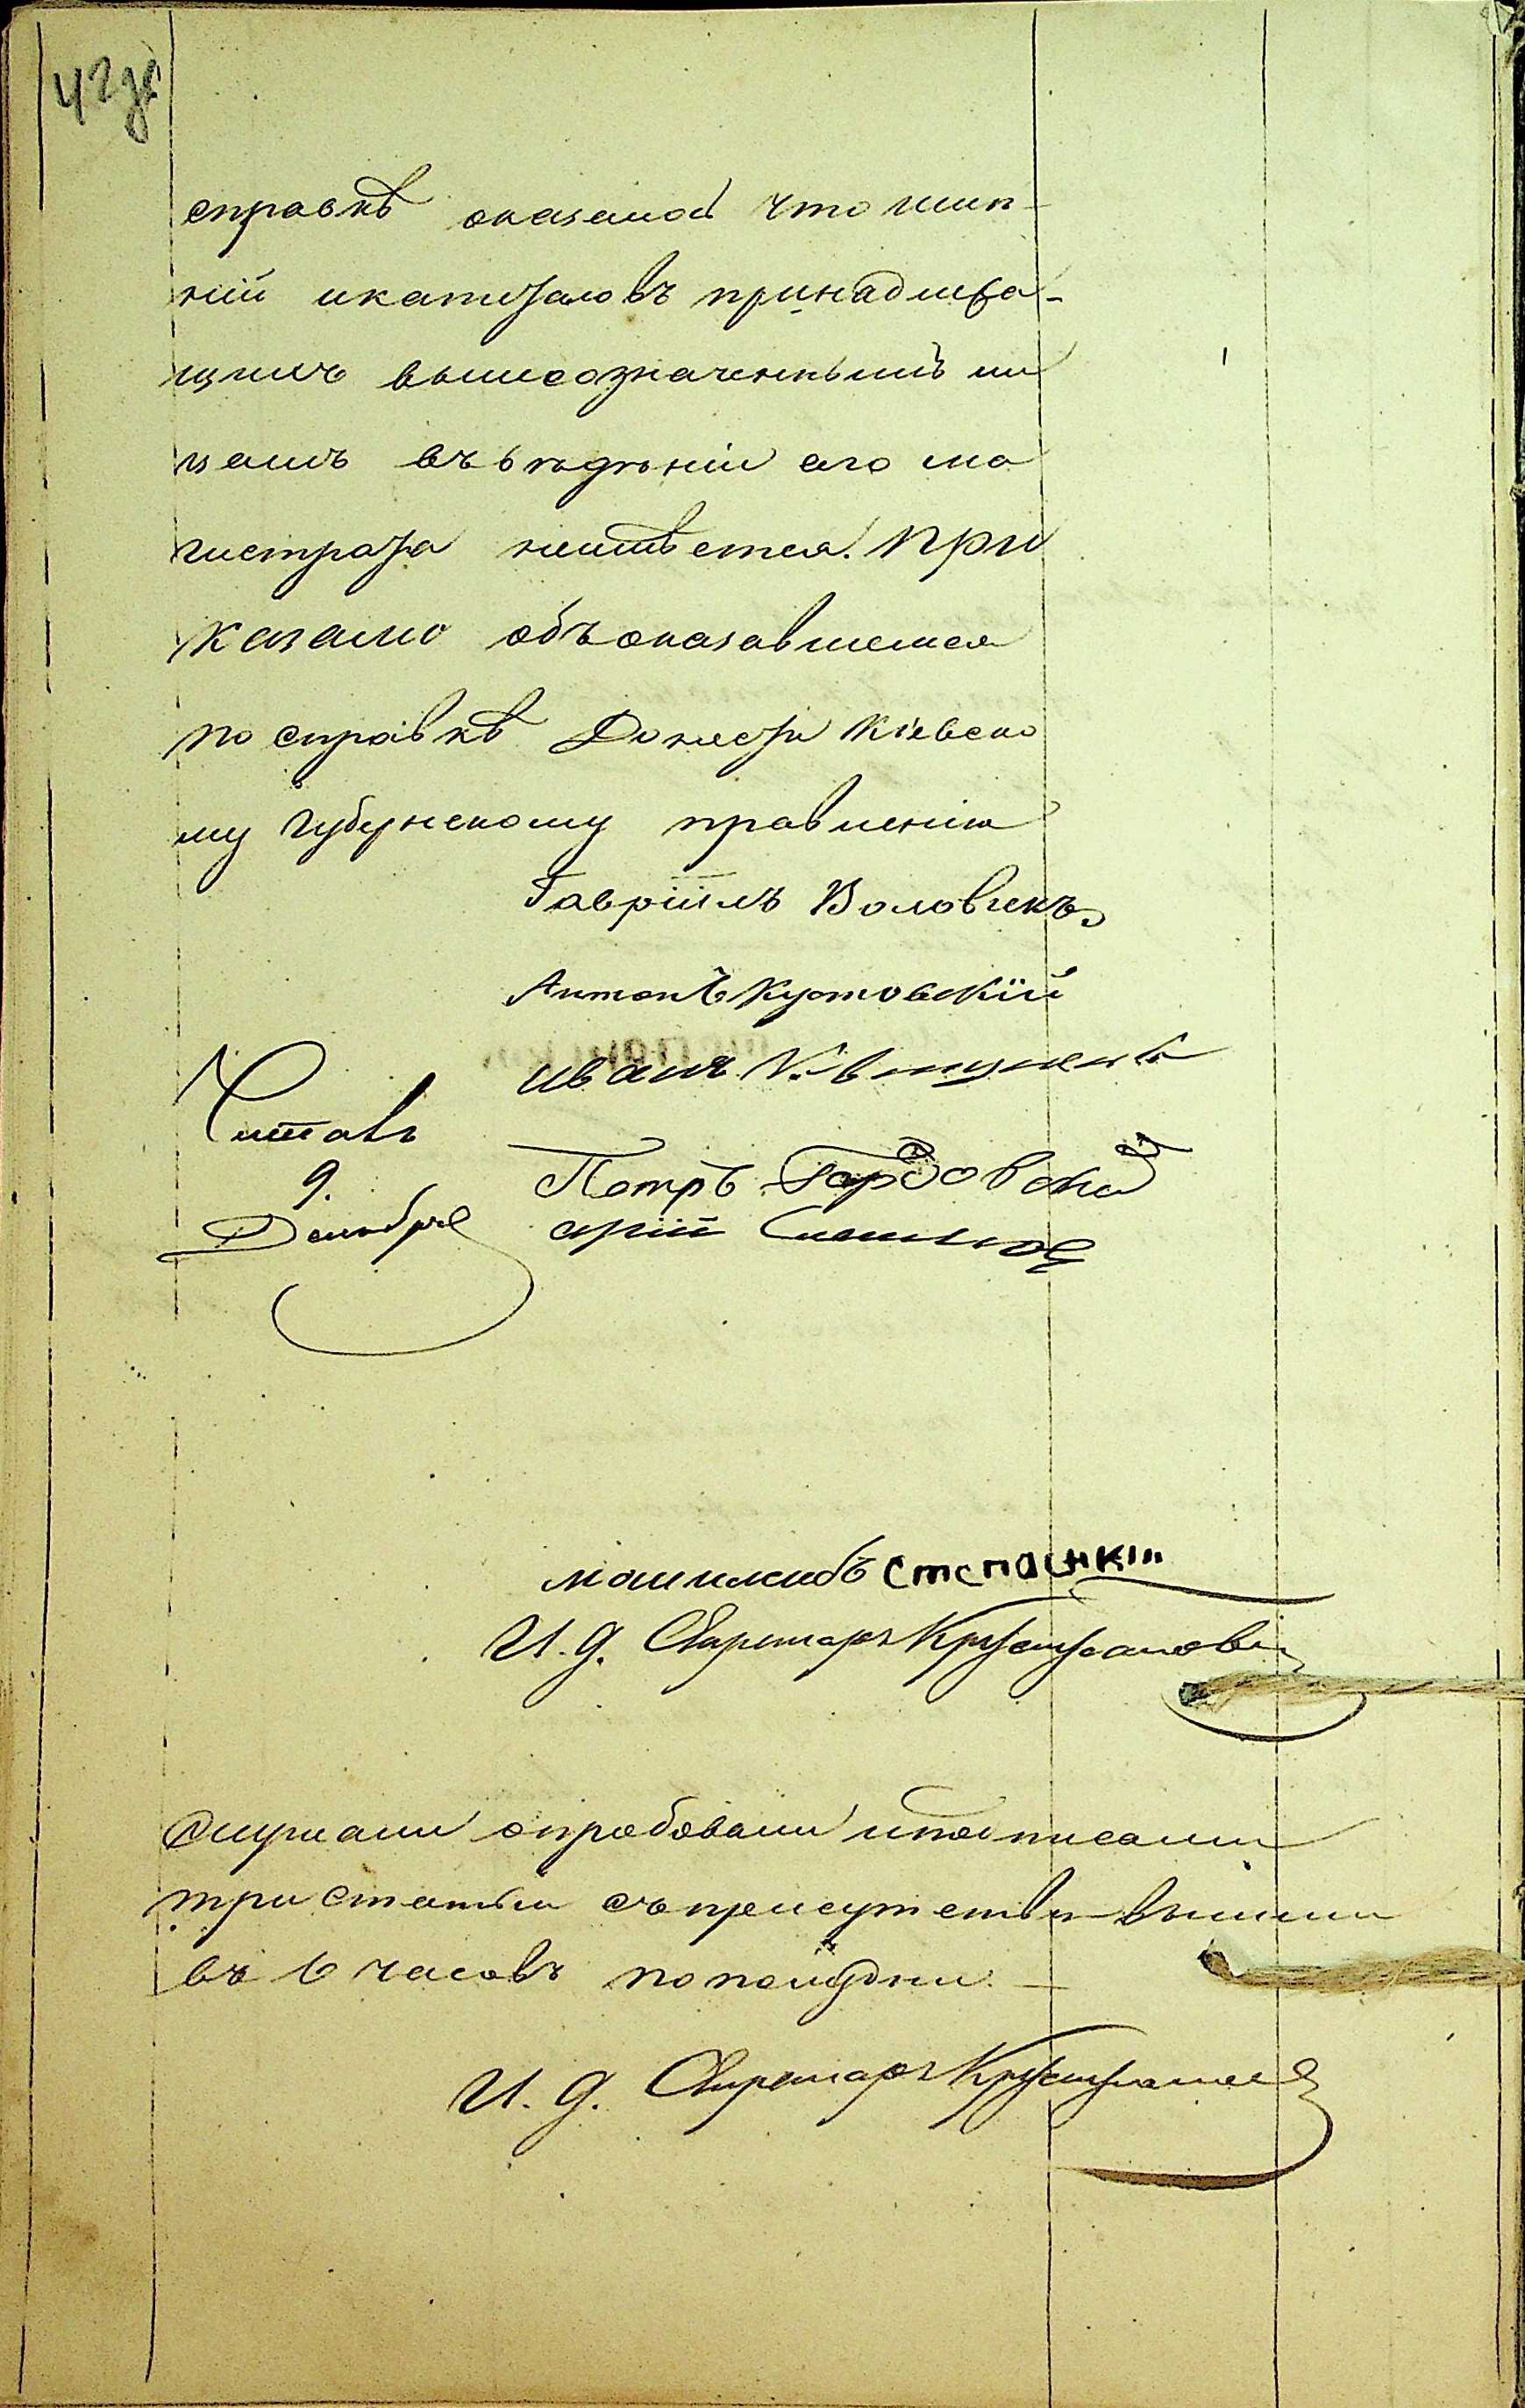 справкѣ оказалось что имѣ-
ній и капиталовъ принадлежа-
щихъ вышеозначеннымъ ли
цамъ въ вѣдѣніи его ма
гистрата неимѣется. При
казали объ оказавшемся
по справкѣ Донести Кіевско
му Губернскому правленію
Гавріилъ Воловикъ
Антонъ Кутовскій
Иванъ
Читалъ
9.
Декабря
Петръ Гордовской
Степанскій
И. д. Секретаря
Журналы опробовали и подписали
три статьи съ присутствія вышли
въ 6 часовъ пополудни. —
И. д. Секретаря